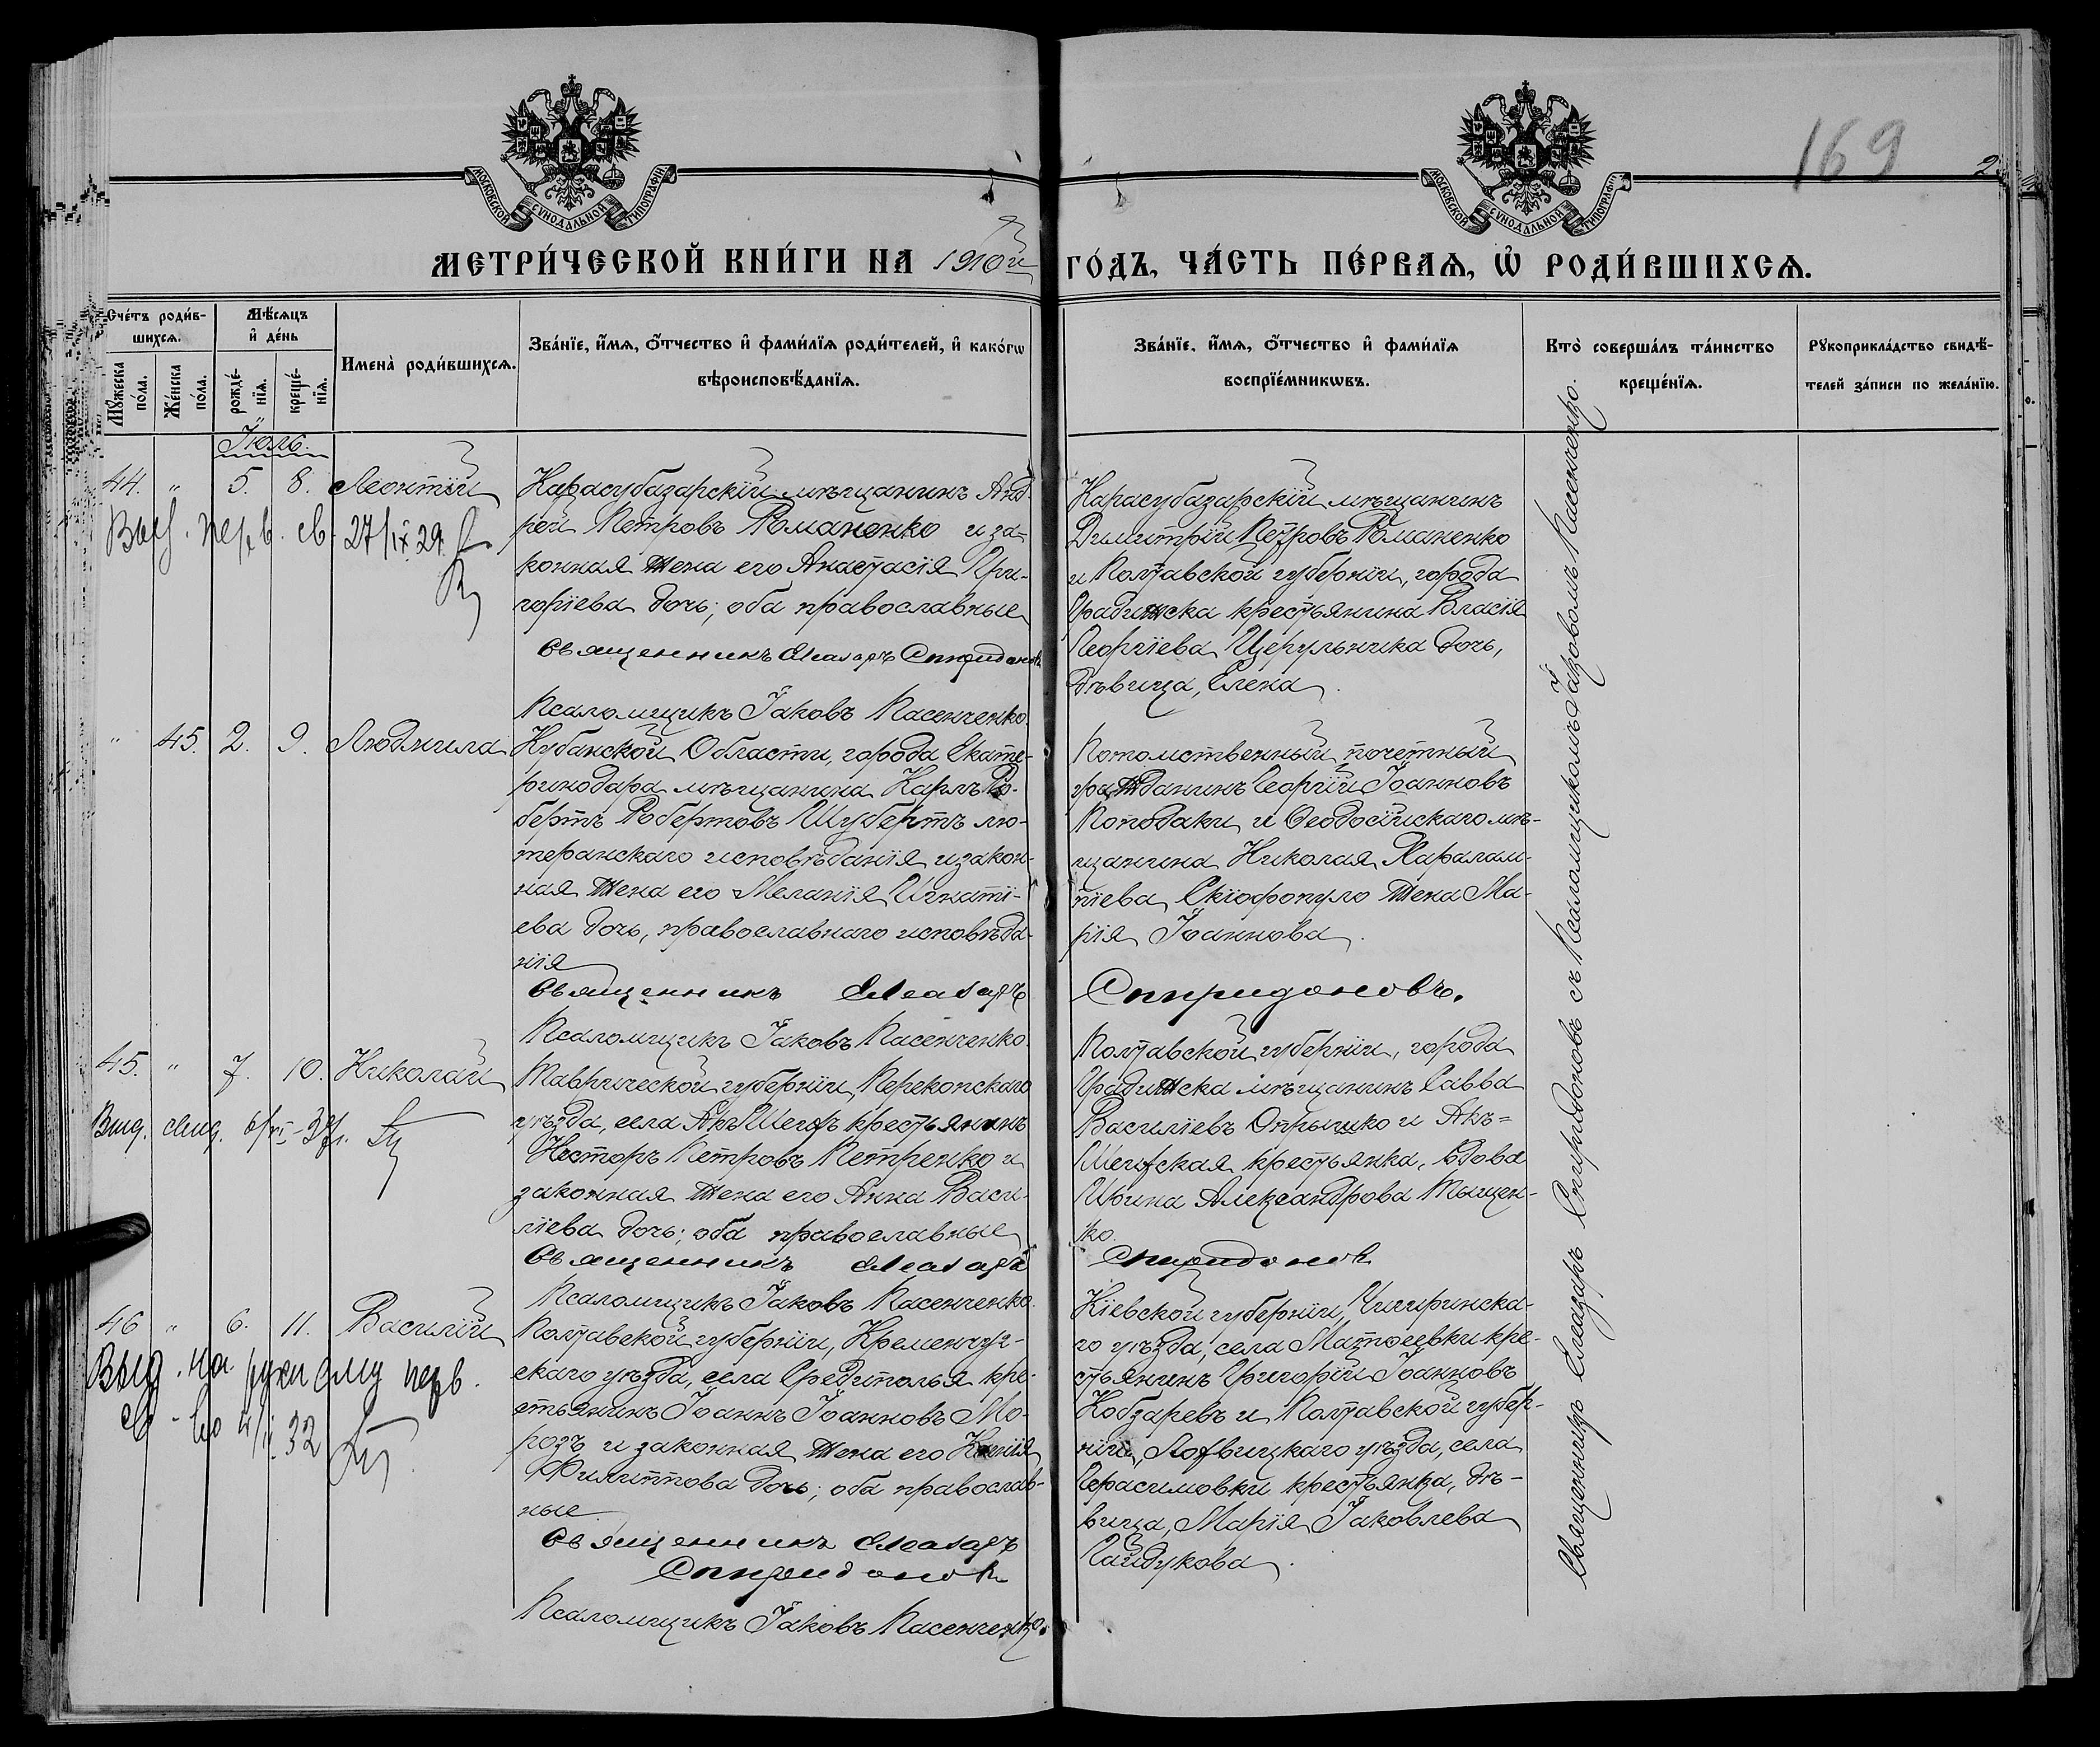 МОСКОВСКОЙ СѴНОДАЛЬНОЙ ТИПОГРАФІИ
МОСКОВСКОЙ СѴНОДАЛЬНОЙ ТИПОГРАФІИ
169
2
МЕТРИ́ЧЕСКОЙ КНИ́ГИ НА 1910й
ГО́ДЪ, ЧА́СТЬ ПЕ́РВАѦ, Ѡ҆ РОДИ́ВШИХСѦ.
Сче́тъ роди́в-
шихсѧ.
Мꙋ́жеска по́ла.
Же́нска по́ла.
Мѣ́сѧцъ
и҆ де́нь
рожде́-
нїѧ.
креще́-
нїѧ.
Имена̀ роди́вшихсѧ.
Зва́нїе, и҆́мѧ, ѻ҆́тчество и҆ фами́лїѧ роди́телей, и҆ како́гѡ
вѣроисповѣ́данїѧ.
Зва́нїе, и҆́мѧ, ѻ҆́тчество и҆ фами́лїѧ
воспрїе́мникѡвъ.
Кто̀ соверша́лъ та́инство
креще́нїѧ.
Рꙋкоприкла́дство свидѣ́-
телей за́писи по жела́нїю.
Іюль.
44. " 5. 8. Леонтій
27/IX 29.
Карасубазарскій мѣщанинъ Анд-
рей Петровъ Романенко и за-
конная жена его Анастасія Гри-
горіева дочь; оба православные
Священникъ Елеазаръ Спиридоновъ
Псаломщикъ Іаковъ Пасенченко.
Карасубазарскій мѣщанинъ
Димитрій Петровъ Романенко
и Полтавской губерніи, города
Градижска крестьянина Власія
Георгіева Церульника дочь,
дѣвица, Елена.
" 45. 2. 9. Людмила
Кубанской Области, города Екате-
ринодара мѣщанина Карлъ Ро-
бертъ Робертовъ Шубертъ лю-
теранскаго исповѣданія и закон-
ная жена его Меланія Игнаті-
ева дочь, православнаго исповѣда-
нія
Священникъ Елеазаръ
Псаломщикъ Іаковъ Пасенченко.
Потомственный почетный
гражданинъ Георгій Іоанновъ
Поподаки и Ѳеодосійскаго мѣ-
щанина Николая Харалам-
піева Скіофопуло жена Ма-
рія Іоаннова.
Спиридоновъ.
45. " 7. 10. Николай
Выд. свид.
Таврической губерніи, Перекопскаго
уѣзда, села Акъ-Шеихъ крестьянинъ
Несторъ Петровъ Петренко и
законная жена его Анна Васи-
ліева дочь; оба православные
Священникъ Елеазаръ
Псаломщикъ Іаковъ Пасенченко.
Полтавской губерніи, города
Градижска мѣщанинъ Савва
Василіевъ Опрышко и Акъ=
Шеихская крестьянка, вдова
Ирина Александрова Тыщен-
ко.
Спиридоновъ
46 " 6. 11. Василій
Выд. на руки ему перв.
св-во 32
Полтавской губерніи, Кременчуг-
скаго уѣзда, села Средиполья кре-
стьянинъ Іоаннъ Іоанновъ Мо-
розъ и законная жена его Ксенія
Филиппова дочь; оба православ-
ные
Священникъ Елеазаръ
Спиридоновъ
Псаломщикъ Іаковъ Пасенченко.
Кіевской губерніи, Чигиринска-
го уѣзда, села Матвеевки кре-
стьянинъ Григорій Іоанновъ
Кобзаревъ и Полтавской губер-
ніи, Лохвицкаго уѣзда, села
Герасимовки крестьянка, дѣ-
вица, Марія Іаковлева
Гайдукова.
Священникъ Елеазаръ Спиридоновъ съ Псаломщикомъ Іаковомъ Пасенченко.